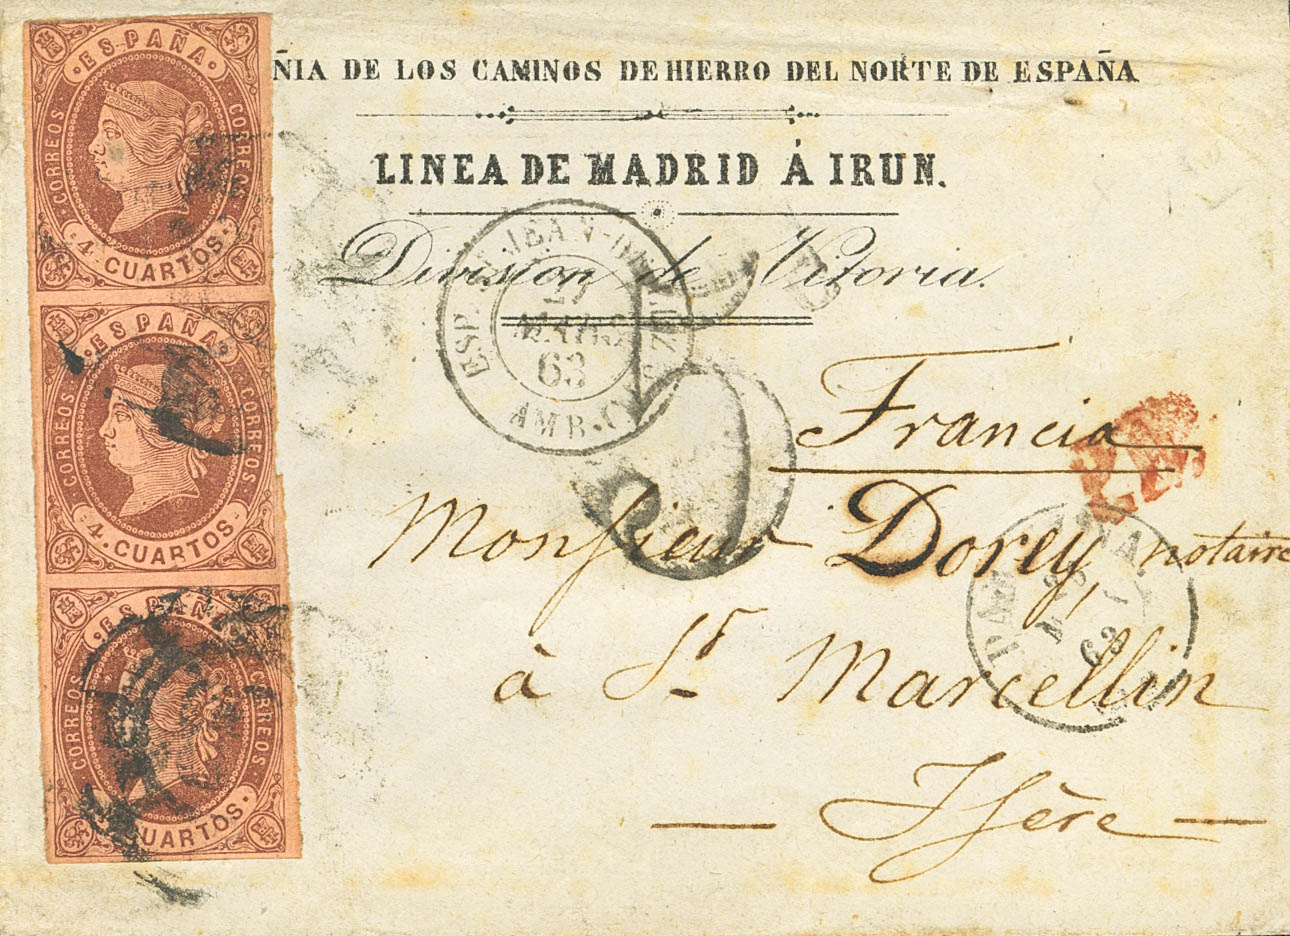 ÑIA DE LOS CAMINOS DE HIERRO DEL NORTE DE ESPAÑA
LINEA DE MADRID Á IRUN.
Division de Vitoria.
ESPAÑA
CORREOS
CORREOS
4 CUARTOS
ESPAÑA
CORREOS
CORREOS
4 CUARTOS
ESPAÑA
CORREOS
CORREOS
CUARTOS
ESP. JEAN-DE-LUZ
MARS
63
AMB.
P D
Francia
Monsieur Dorey, notaire
à St Marcellin
Isère
63